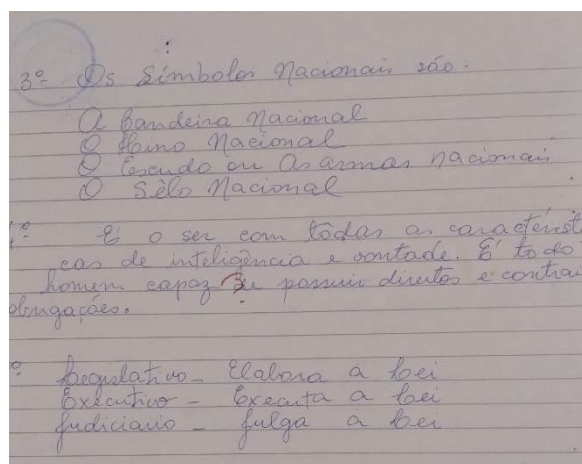 3º- Os Símbolos Nacionais são:
A Bandeira Nacional
O Hino Nacional
O Escudo ou As armas nacionais
O Sêlo Nacional
º É o ser com tôdas as característi
cas de inteligência e vontade. É todo
homem capaz de possuir direitos e contrai
obrigações.
º Legislativo - Elabora a Lei
Executivo - Executa a Lei
Judiciario - Julga a Lei